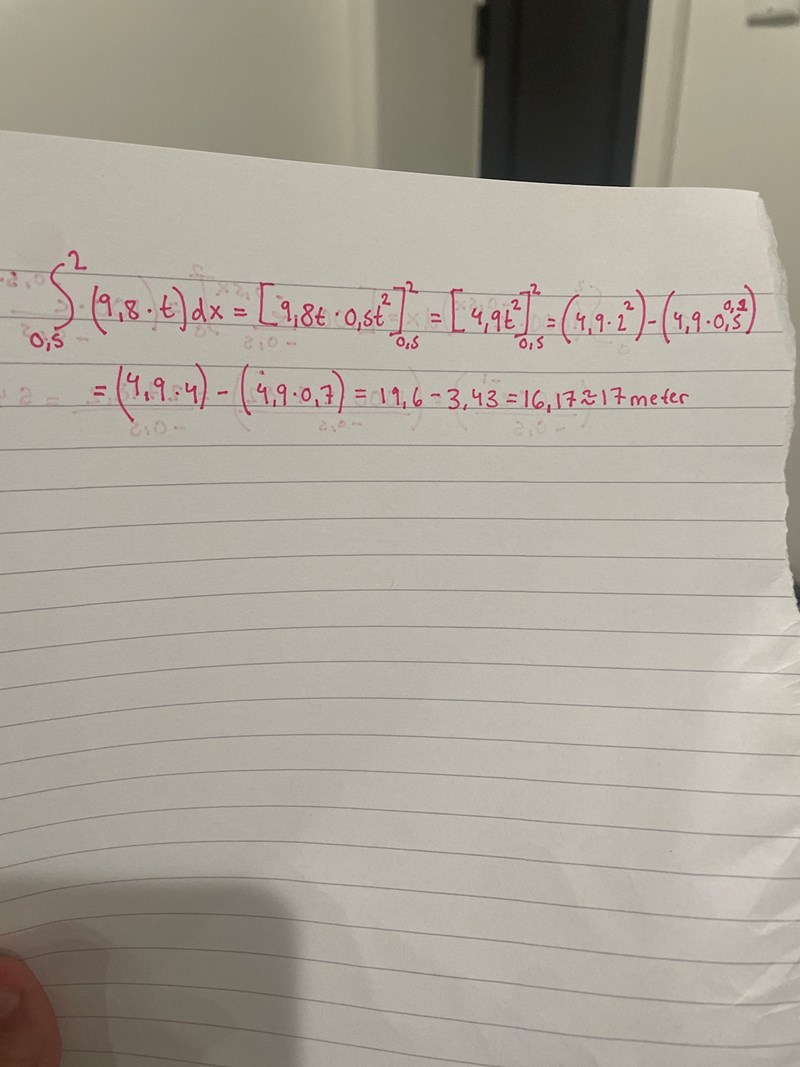 ∫_{0,5}^{2} (9,8 · t) dx = [9,8t · 0,5t²]_{0,5}^{2} = [4,9t²]_{0,5}^{2} = (4,9 · 2²) - (4,9 · 0,5^{0,2})
= (4,9 · 4) - (4,9 · 0,7) = 19,6 - 3,43 = 16,17 ≈ 17 meter